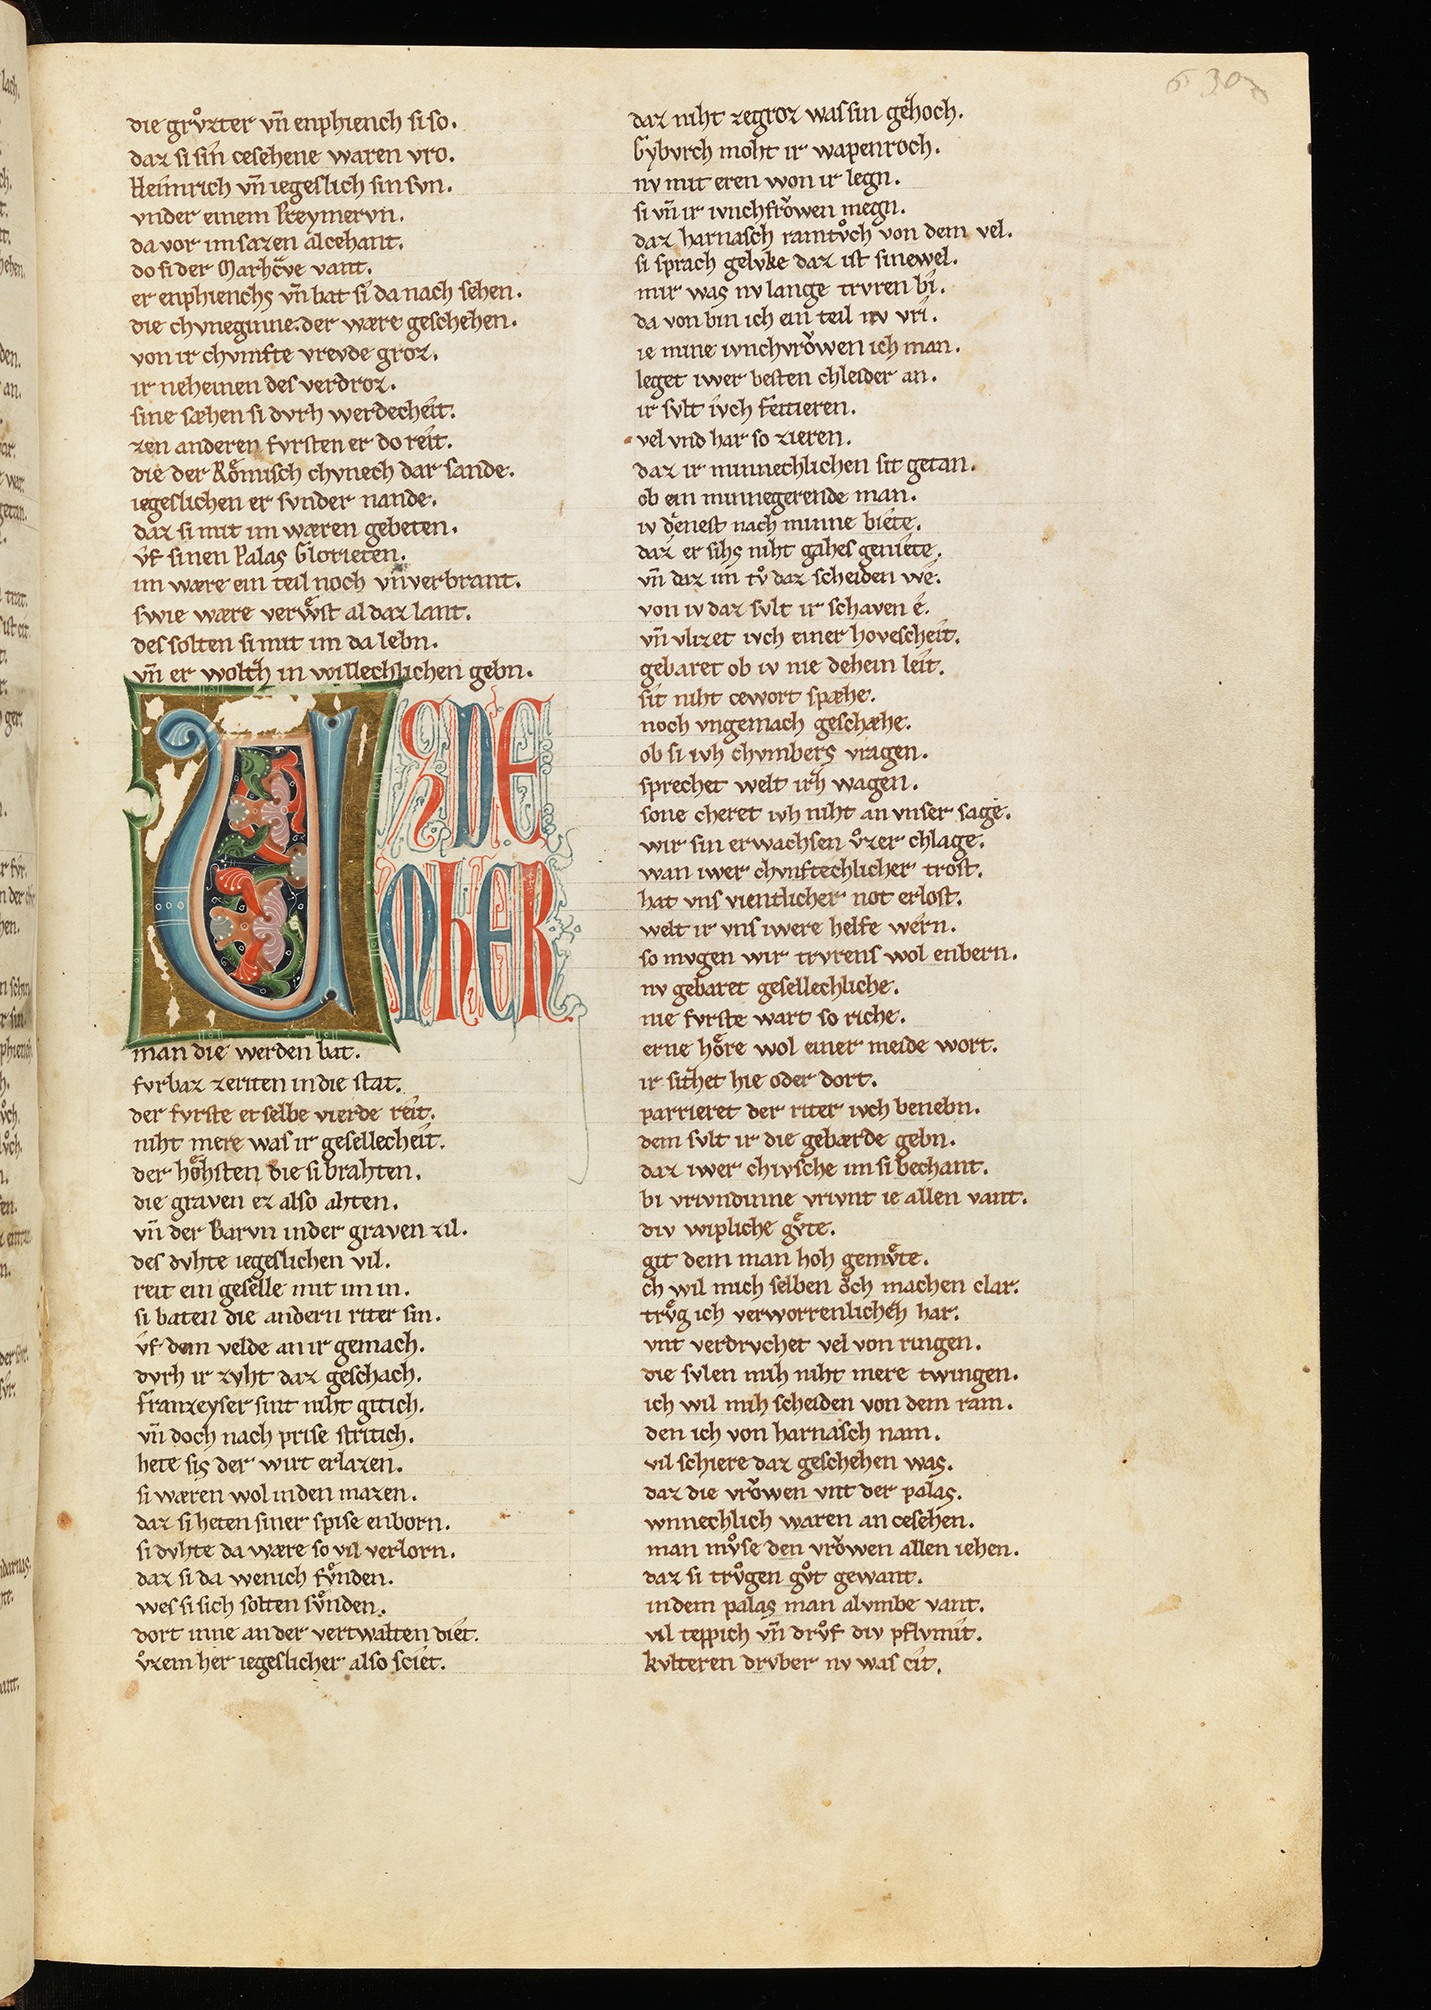 630
die grůzter vn̄ enphiench si so.
daz si sin cesehene waren vro.
Heimrich vn̄ iegeslich sin svn.
vnder einem Preymervn.
da vor im sazen alcehant.
do si der Marhcͮve vant.
er enphienchs vn̄ bat si da nach sehen.
die chvneginne. der wære geschehen.
von ir chvmfte vrevde groz.
ir neheinen des verdroz.
sine sæhen si dvrh werdecheit.
zen anderen fvrsten er do reit.
die der Rômisch chvnech dar sande.
iegeslichen er svnder nande.
daz si mit im wæren gebeten.
vf sinen Palas Glorieten.
im wære ein teil noch vnverbrant.
swie wære verwͤst al daz lant.
des solten si mit im da lebn.
vn̄ er woltħ in willechlichen gebn.
UZDE
MHER
man die werden bat.
fvrbaz zeriten in die stat.
der fvrste er selbe vierde reit.
niht mere was ir gesellecheit.
der hôhsten die si brahten.
die graven ez also ahten.
vn̄ der Barvn in der graven zil.
des dvhte iegeslichen vil.
reit ein geselle mit im in.
si baten die andern riter sin.
vf dem velde an ir gemach.
dvrh ir zvht daz geschach.
Franzeyser sint niht gitich.
vn̄ doch nach prise stritich.
hete sis der wirt erlazen.
si wæren wol in den mazen.
daz si heten siner spise enborn.
si dvhte da wære so vil verlorn.
daz si da wenich fvͤnden.
wes si sich solten svͤnden.
dort inne an der vertwalten diet.
vͦzem her iegeslicher also sciet.
daz niht zegroz was sin gehoch.
Gybvrch moht ir wapenroch.
nv mit eren von ir legn.
si vn̄ ir ivnchfrŏwen megn.
daz harnasch ramtvͦch von dem vel.
si sprach gelvke daz ist sinewel.
mir was nv lange trvren bi.
da von bin ich ein teil nv vri.
ie mine ivnchvrŏwen ich man.
leget iwer besten chleider an.
ir svlt ivch feitieren.
vel vnd har so zieren.
daz ir minnechlichen sit getan.
ob ein minnegerende man.
iv dͤenest nach minne biete.
daz er sihs niht gahes geniete.
vn̄ daz im tvͦ daz scheiden we.
von iv daz svlt ir schaven e.
vn̄ vlizet ivch einer hovescheit.
gebaret ob iv nie dehein leit.
sit niht cewort spæhe.
noch vngemach geschæhe.
ob si ivh chvmbers vragen.
sprechet welt irħ wagen.
sone cheret ivh niht an vnser sage.
wir sin erwachsen vͦzer chlage.
wan iwer chvnftechlicher trost.
hat vns vientlicher not erlost.
welt ir vns iwere helfe wern.
so mvgen wir trvrens wol enbern.
nv gebaret gesellechliche.
nie fvrste wart so riche.
erne hôre wol einer meide wort.
ir sitħet hie oder dort.
parrieret der riter ivch benebn.
dem svlt ir die gebærde gebn.
daz iwer chivsche im si bechant.
bi vrivndinne vrivnt ie allen vant.
div wipliche gvͤte.
git dem man hoh gemvͤte.
ch wil mich selben ŏch machen clar.
trvͤg ich verworrenlichen har.
vnt verdrvchet vel von ringen.
die svlen mih niht mere twingen.
ich wil mih scheiden von dem ram.
den ich von harnasch nam.
vil schiere daz geschehen was.
daz die vrŏwen vnt der palas.
wnnechlich waren an cesehen.
man mvͦse den vrŏwen allen iehen.
daz si trvͦgen gvͦt gewant.
in dem palas man alvmbe vant.
vil teppich vn̄ drvͦf div pflvmit.
kvlteren drvber nv was cit.